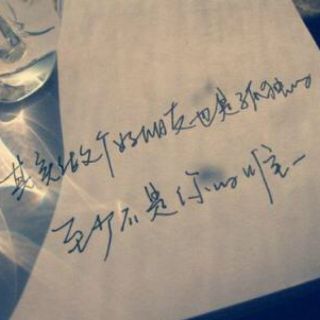 其实做个好朋友也是孤独的
至少不是你的唯一